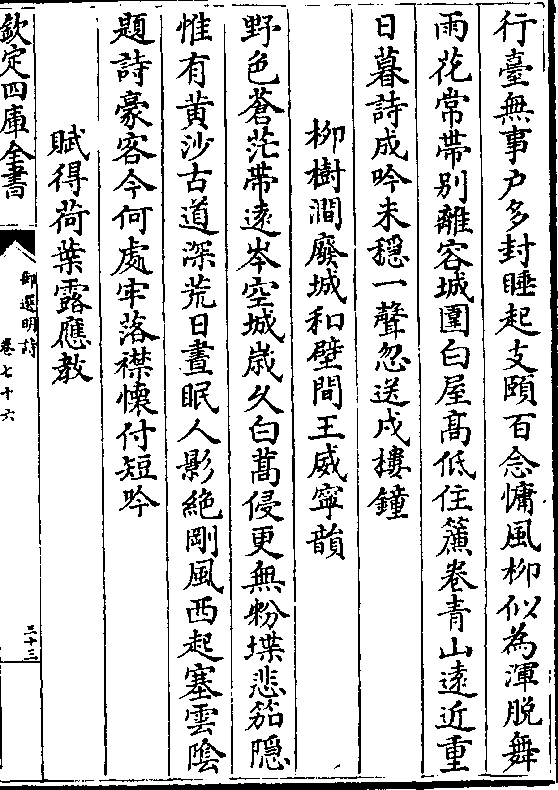 行臺無事户多封睡起支頤百念慵風柳似為渾脱舞
雨花常帶别離容城圍白屋髙低住簾卷青山逺近重
日暮詩成吟未穩一聲忽送戍樓鐘
柳樹澗廢城和壁間王威寧韻
野色蒼茫帶逺岑空城歳久白蒿侵更無粉堞悲笳隠
惟有黄沙古道深荒日晝眠人影絶剛風西起塞雲陰
題詩豪客今何處牢落襟懷付短吟
賦得荷葉露應教
欽定四庫全書
御選明詩
卷七十六
三十三